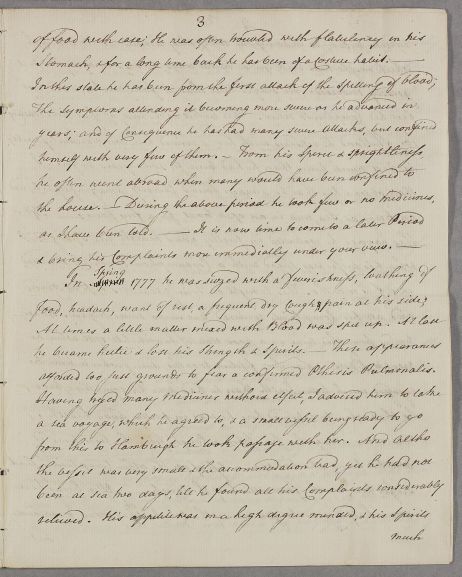 3
of food with ease; He was often troubled with flatulency in his
Stomach, & for a long time back he has been of a costive habit. —
In this state he has been from the first attack of the spitting of blood;
The symptoms attending it becoming more severe as he advanced in
years; and of Consequence he has had many severe attacks, but confined
himself with very few of them. — From his spirit & sprightliness,
he often went abroad when many would have been confined to
the house. — During the above period he took few or no medicines,
as I have been told. — It is now time to come to a later Period
& bring his Complaints more immediatly under your view. —
In Spring 1777 he was seized with a feverishness, loathing of
food, headach, want of rest, a frequent dry Cough & pain at his side;
At times a little matter mixed with Blood was spit up. At last
he became hectic & lost his Strength & Spirits. — These appearances
afforded too just grounds to fear a confirmed Phthisis Pulmonalis.
Having tryed many Medicines without effect, I advised him to take
a sea voyage, which he agreed to, & a small vessel being ready to go
from this to Hamburgh he took passage with her. And altho
the vessel was very small & the accommodation bad, yet he had not
been at sea two days, till he found all his Complaints considerably
relieved. His appetite was in a high degree mended, & his Spirits
much